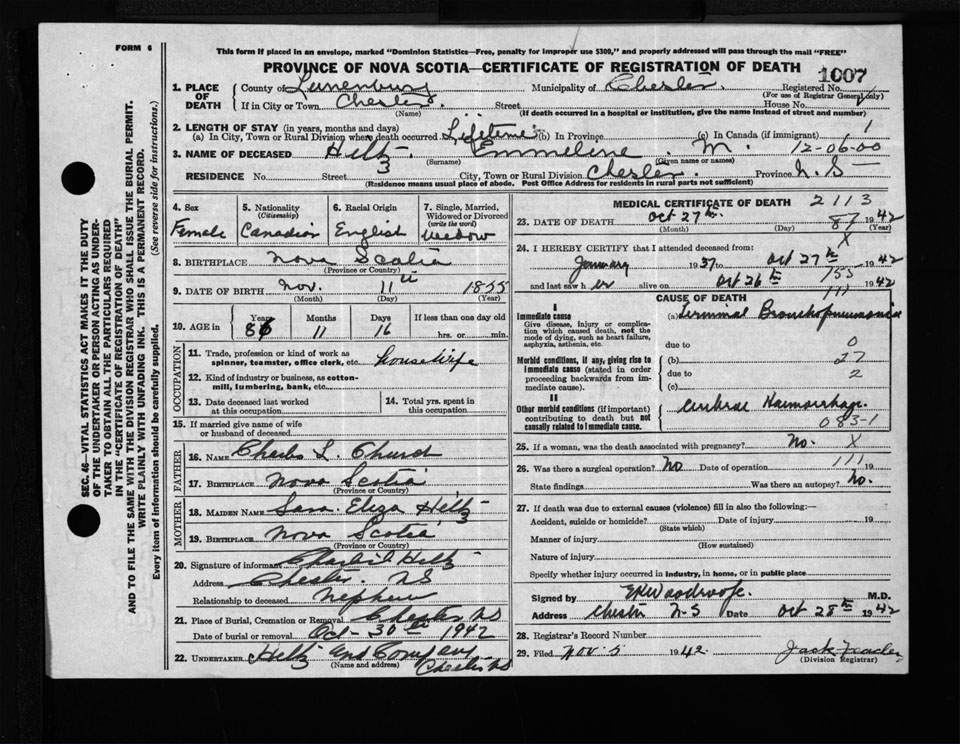 FORM 6
This form if placed in an envelope, marked "Dominion Statistics—Free, penalty for improper use $300," and properly addressed will pass through the mail "FREE"
PROVINCE OF NOVA SCOTIA—CERTIFICATE OF REGISTRATION OF DEATH
1007
1. PLACE OF DEATH County of Lunenburg Municipality of Chester Registered No.
(For use of Registrar General only)
If in City or Town Chester Street House No.
(Name) (If death occurred in a hospital or institution, give its name instead of street and number)
2. LENGTH OF STAY (in years, months and days)
(a) In City, Town or Rural Division where death occurred Lifetime (b) In Province (c) In Canada (if immigrant) 1
3. NAME OF DECEASED Hiltz Emmeline M. 12-06-00
(Surname) (Given name or names)
RESIDENCE No. Street City, Town or Rural Division Chester Province N.S
(Residence means usual place of abode. Post Office Address for residents in rural parts not sufficient)
4. Sex Female
5. Nationality (Citizenship) Canadian
6. Racial Origin English
7. Single, Married, Widowed or Divorced (write the word) widow
8. BIRTHPLACE Nova Scotia
(Province or Country)
9. DATE OF BIRTH Nov. 11th 1855
(Month) (Day) (Year)
10. AGE in Years 86 Months 11 Days 16 If less than one day old hrs. or min.
OCCUPATION
11. Trade, profession or kind of work as spinner, teamster, office clerk, etc. housewife
12. Kind of industry or business, as cotton-mill, lumbering, bank, etc.
13. Date deceased last worked at this occupation
14. Total yrs. spent in this occupation
15. If married give name of wife or husband of deceased
FATHER
16. NAME Charles L. Church
17. BIRTHPLACE Nova Scotia
(Province or Country)
MOTHER
18. MAIDEN NAME Sara Eliza Hiltz
19. BIRTHPLACE Nova Scotia
(Province or Country)
20. Signature of informant Hiltz
Address Chester. NS
Relationship to deceased nephew
21. Place of Burial, Cremation or Removal Chester NS
Date of burial or removal Oct-30th 1942
22. UNDERTAKER Hiltz and Company Chester NS
(Name and address)
MEDICAL CERTIFICATE OF DEATH 2113
23. DATE OF DEATH Oct 27th 87 1942
(Month) (Day) (Year)
24. I HEREBY CERTIFY that I attended deceased from: X
January 1937 to Oct 27th 1942
755
and last saw h er alive on Oct 26th 1942
111
CAUSE OF DEATH
I
Immediate cause
Give disease, injury or complication which caused death, not the mode of dying, such as heart failure, asphyxia, asthenia, etc.
(a) Terminal Bronchopneumonia
due to 0
Morbid conditions, if any, giving rise to immediate cause (stated in order proceeding backwards from immediate cause).
(b) 27
due to 2
(c)
II
Other morbid conditions (if important) contributing to death but not causally related to immediate cause.
Cerebral Haemorrhage
083-1
25. If a woman, was the death associated with pregnancy? No. X
26. Was there a surgical operation? No Date of operation 111 19
State findings Was there an autopsy? No.
27. If death was due to external causes (violence) fill in also the following:—
Accident, suicide or homicide? Date of injury 19
(State which)
Manner of injury
(How sustained)
Nature of injury
Specify whether injury occurred in industry, in home, or in public place
Signed by M.D.
Address Chester N-S Date Oct 28th 1942
28. Registrar's Record Number
29. Filed Nov. 5 1942
(Division Registrar)
SEC. 46—VITAL STATISTICS ACT MAKES IT THE DUTY
OF THE UNDERTAKER OR PERSON ACTING AS UNDER-
TAKER TO OBTAIN ALL THE PARTICULARS REQUIRED
IN THE "CERTIFICATE OF REGISTRATION OF DEATH"
AND TO FILE THE SAME WITH THE DIVISION REGISTRAR WHO SHALL ISSUE THE BURIAL PERMIT.
WRITE PLAINLY WITH UNFADING INK. THIS IS A PERMANENT RECORD.
Every item of information should be carefully supplied. (See reverse side for instructions.)